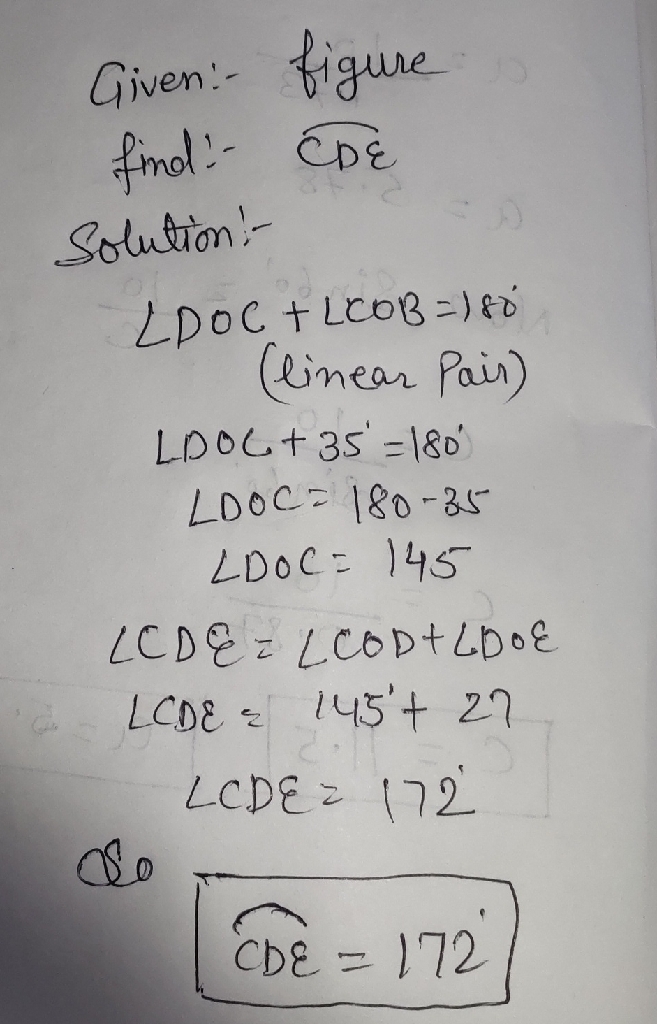 Given:- figure
find:- CDE
Solution:-
∠DOC + ∠COB = 180°
(linear Pair)
∠DOC + 35° = 180°
∠DOC = 180 - 35
∠DOC = 145
∠CDE = ∠COD + ∠DOE
∠CDE = 145° + 27
∠CDE = 172°
So
CDE = 172°